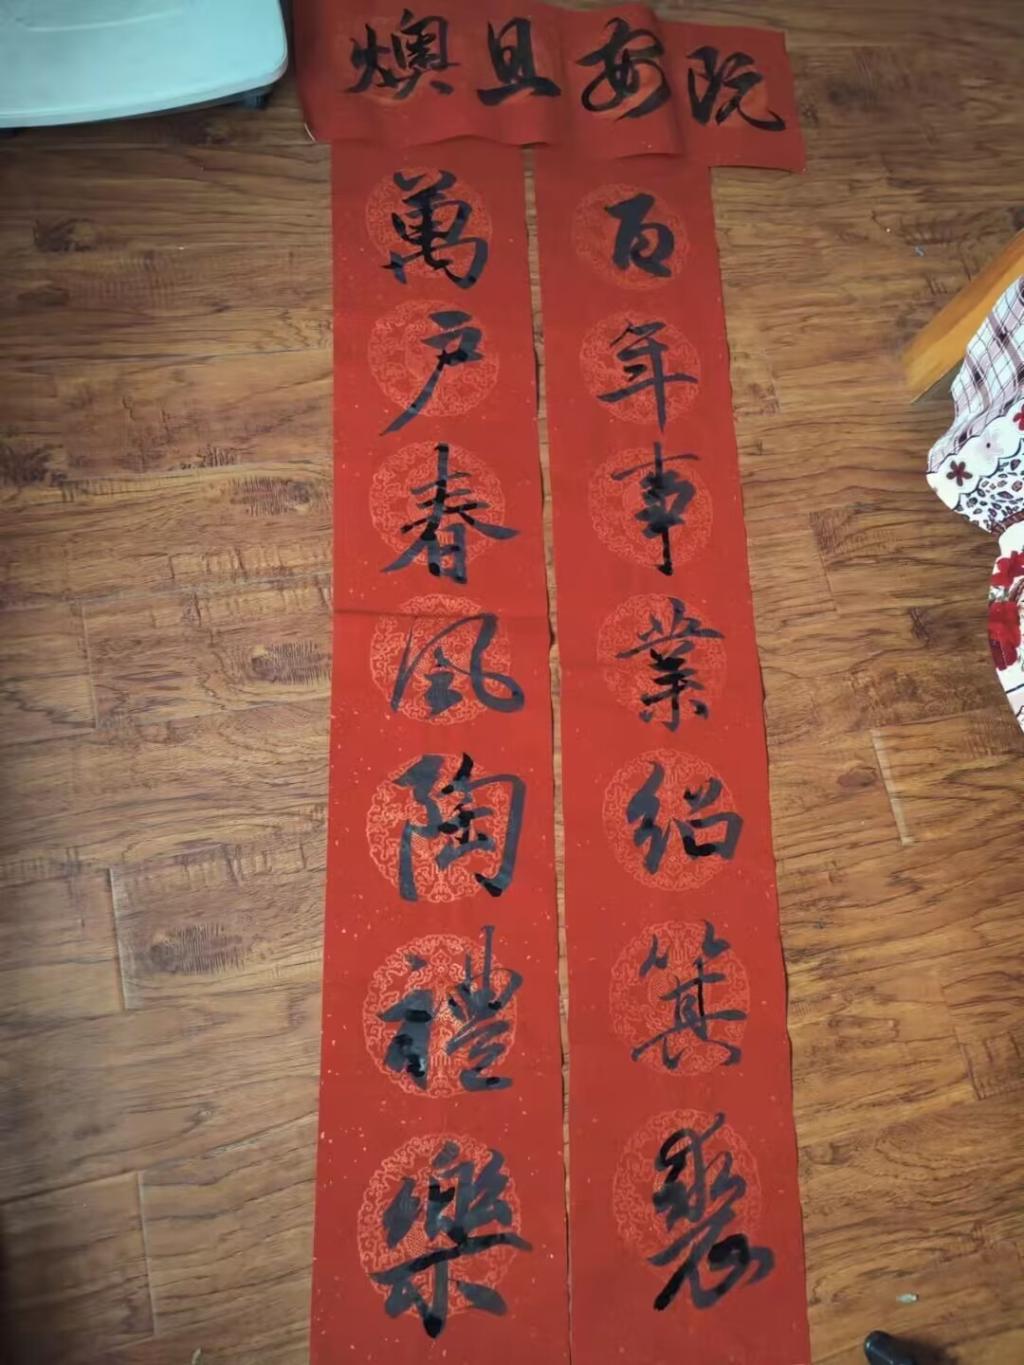 既安且燠
百年事業紹箕裘
萬戶春風陶禮樂